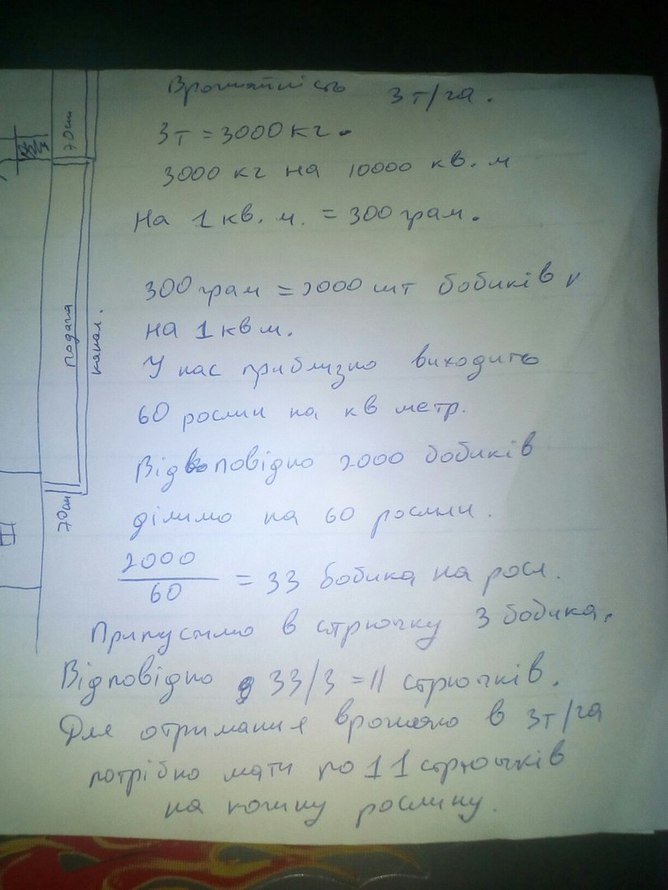 Врожайність 3т/га.
3т = 3000 кг.
3000 кг на 10000 кв. м
На 1 кв. м. = 300 грам.
300 грам = 2000 шт бобиків
на 1 кв м.
У нас приблизно виходить
60 рослин на кв метр.
Відповідно 2000 бобиків
ділимо на 60 рослин.
2000
60
= 33 бобика на росл.
Припустимо в стрючку 3 бобика.
Відповідно 33/3 = 11 стрючків.
Для отримання врожаю в 3т/га
потрібно мати по 11 стрючків
на кожну рослину.
70 см
подача
канал.
70 см